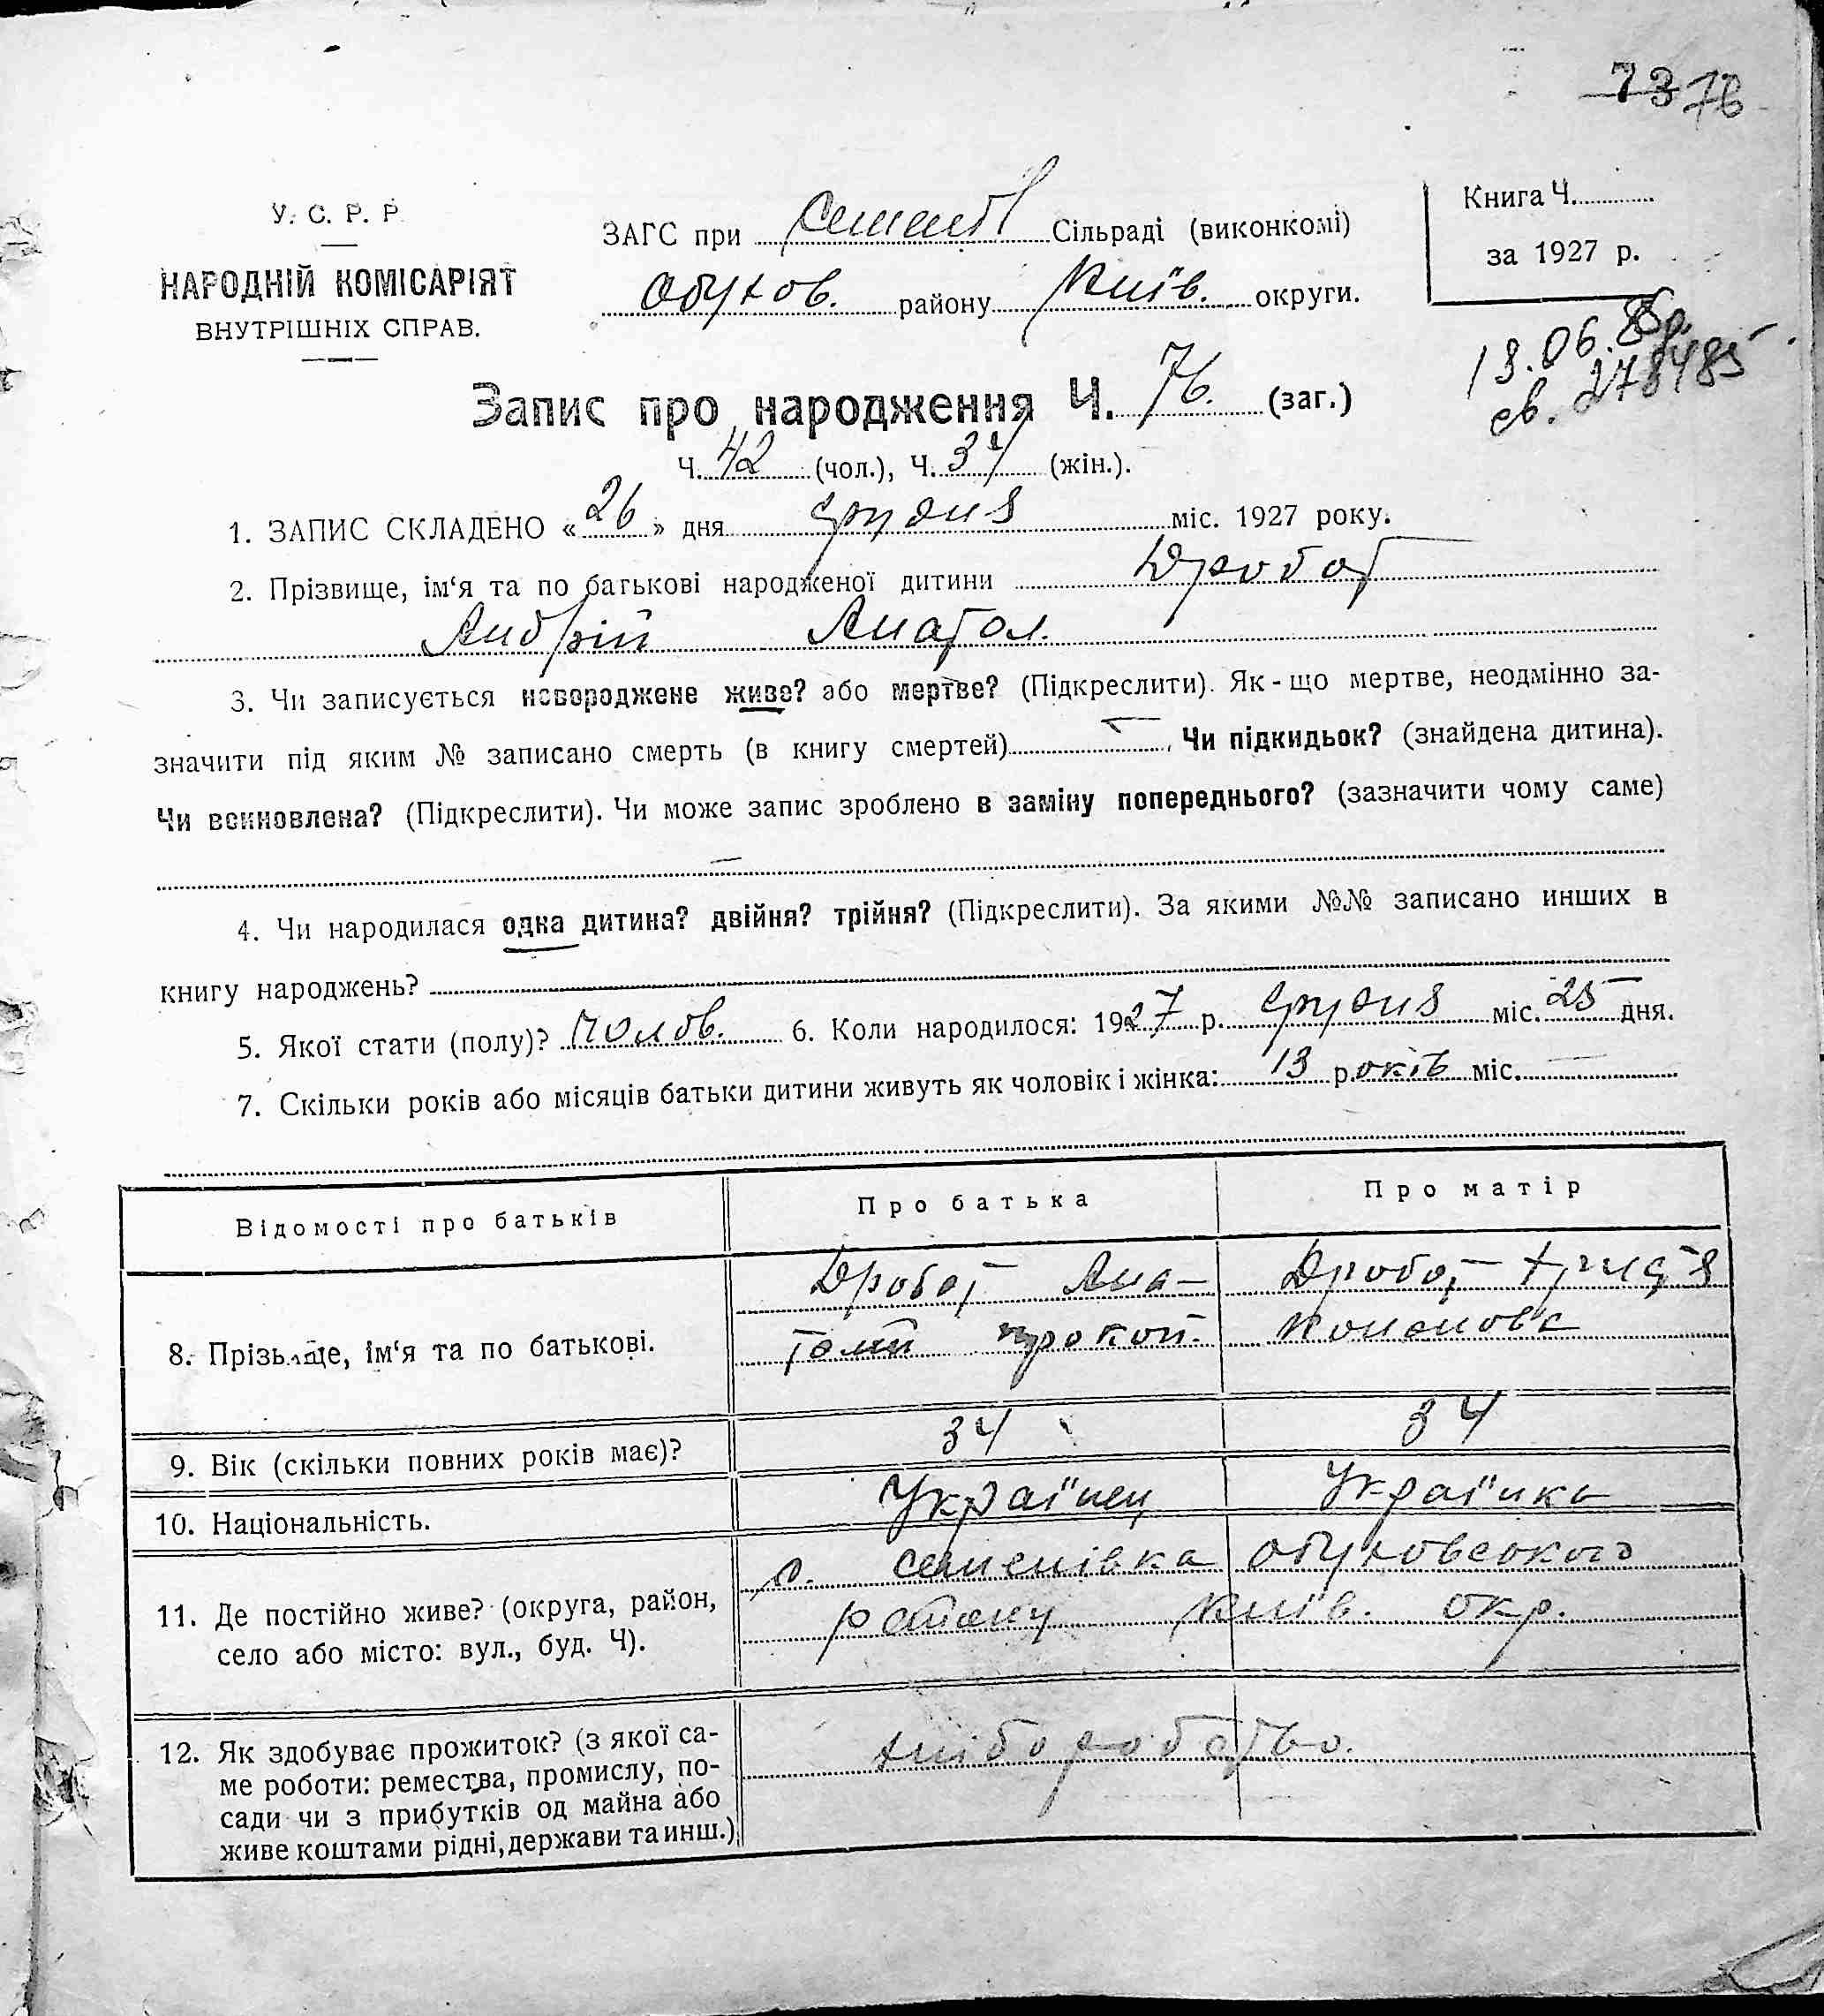 73 76
У. С. Р. Р.
НАРОДНІЙ КОМІСАРІЯТ
ВНУТРІШНІХ СПРАВ.
ЗАГС при Семенів Сільраді (виконкомі)
Обухов. району Київ. округи.
Книга Ч.
за 1927 р.
св. 278485
Запис про народження Ч. 76. (заг.)
Ч. 42 (чол.), Ч. 34 (жін.).
1. ЗАПИС СКЛАДЕНО «26» дня грудня міс. 1927 року.
2. Прізвище, ім‘я та по батькові народженої дитини Дробот
Андрій Анатол.
3. Чи записується новороджене живе? або мертве? (Підкреслити). Як-що мертве, неодмінно за-
значити під яким № записано смерть (в книгу смертей) — Чи підкидьок? (знайдена дитина).
Чи всиновлена? (Підкреслити). Чи може запис зроблено в заміну попереднього? (зазначити чому саме)
—
4. Чи народилася одна дитина? двійня? трійня? (Підкреслити). За якими №№ записано инших в
книгу народжень?
5. Якої стати (полу)? чолов. 6. Коли народилося: 1927 р. грудня міс. 25 дня.
7. Скільки років або місяців батьки дитини живуть як чоловік і жінка: 13 років міс. —
Відомості про батьків Про батька Про матір
8. Прізвище, ім‘я та по батькові. Дробот Ана- Дробот
толій Прокоп. Кононовa
9. Вік (скільки повних років має)? 34 34
10. Національність. Українец Українка
11. Де постійно живе? (округа, район, с. Семенівка Обуховського
село або місто: вул., буд. Ч). району Київ. окр.
12. Як здобуває прожиток? (з якої са-
ме роботи: ремества, промислу, по- хліборобство.
сади чи з прибутків од майна або
живе коштами рідні, держави та инш.)